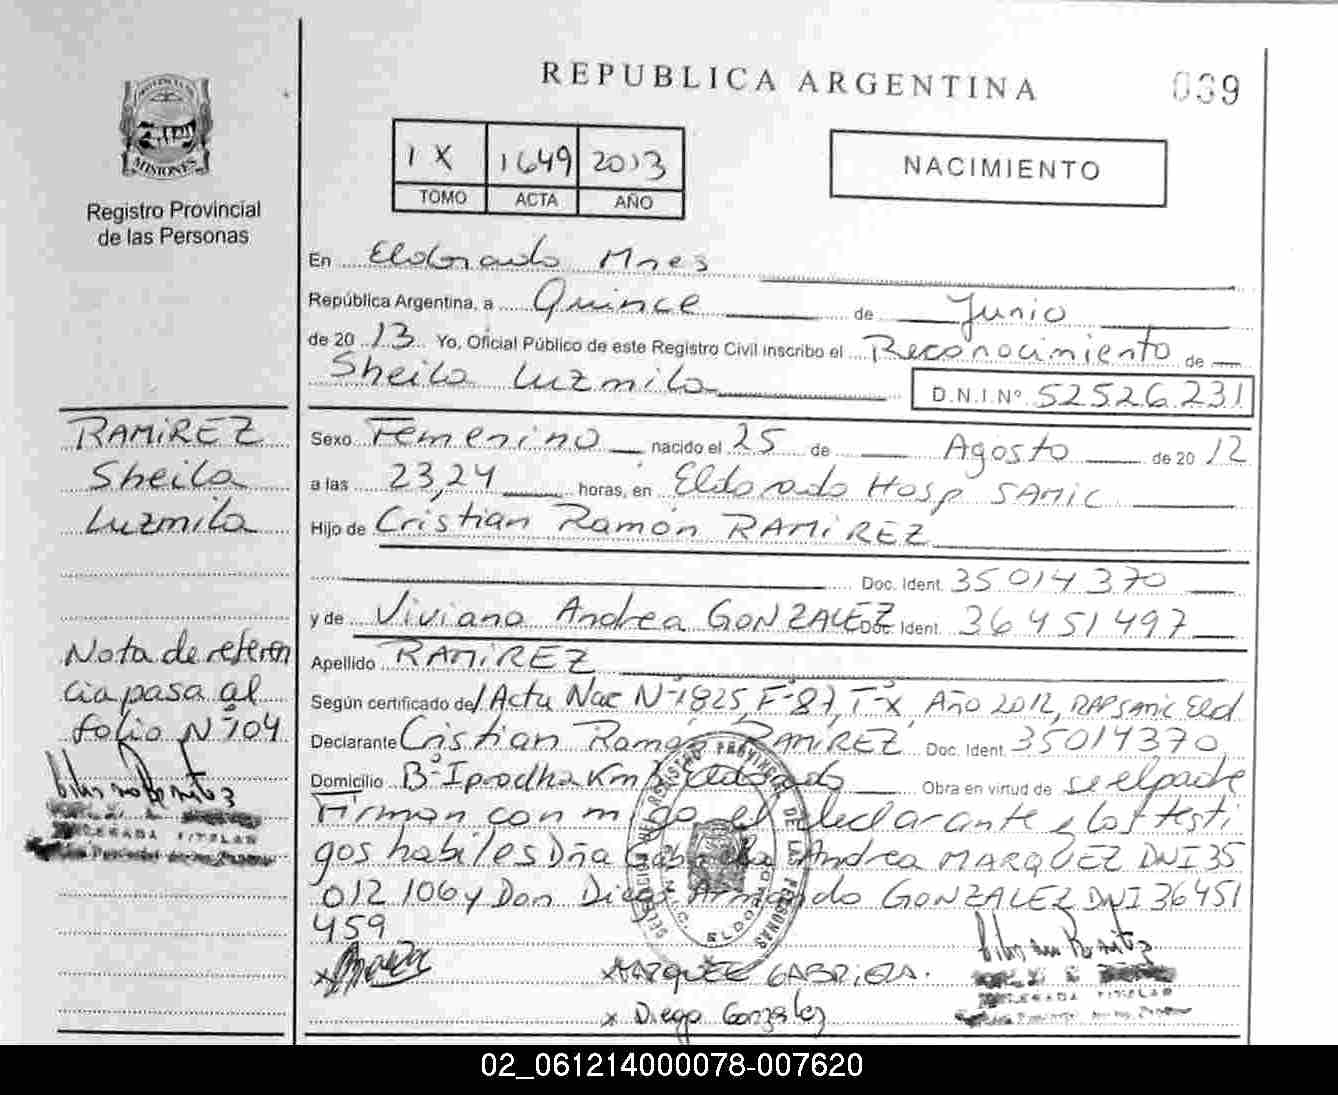 REPUBLICA ARGENTINA
039
MISIONES
Registro Provincial
de las Personas
IX 1649 2013
TOMO ACTA AÑO
NACIMIENTO
En Eldorado Mnes
República Argentina, a Quince de Junio
de 2013 Yo, Oficial Público de este Registro Civil inscribo el Reconocimiento de
Sheila Luzmila
D.N.I.Nº 52526231
RAMIREZ
Sheila
Luzmila
Sexo Femenino nacido el 25 de Agosto de 2012
a las 23,24 horas, en Eldorado Hosp SAMIC
Hijo de Cristian Ramón RAMIREZ
Doc. Ident. 35014370
y de Viviana Andrea GONZALEZ Doc. Ident. 36451497
Apellido RAMIREZ
Según certificado de Acta Nac Nº1825, Fº87, Tº X, Año 2012, RAP Samic Eld
Declarante Cristian Ramón RAMIREZ Doc. Ident. 35014370
Domicilio Bº Iprodha Km Eldorado Obra en virtud de se el padre
Firman conmigo el declarante y los testi
gos habiles Dña Gabriela Andrea MARQUEZ DNI 35
012 106 y Don Diego Armando GONZALEZ DNI 36451
459
Nota de referen
cia pasa al
folio Nº 104
DELEGADA TITULAR
REGISTRO PROVINCIAL DE LAS PERSONAS
ELDORADO
x MARQUEZ GABRIELA.
x Diego Gonzalez
02_061214000078-007620